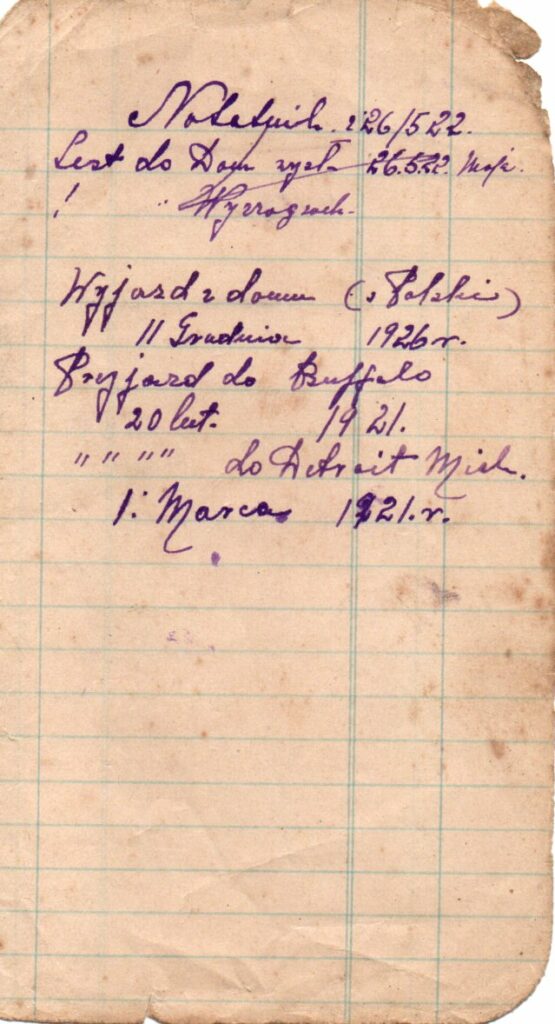 Notatnik. 26/5 22.
List do Dom wysł 26.5.22. Maja.
! "
Wyjazd z domu (z Polski)
11 Grudnia 1926 r.
Przyjazd do Buffalo
20 lut. 1921.
" " " " do Detroit Mich.
1: Marca 1921. r.